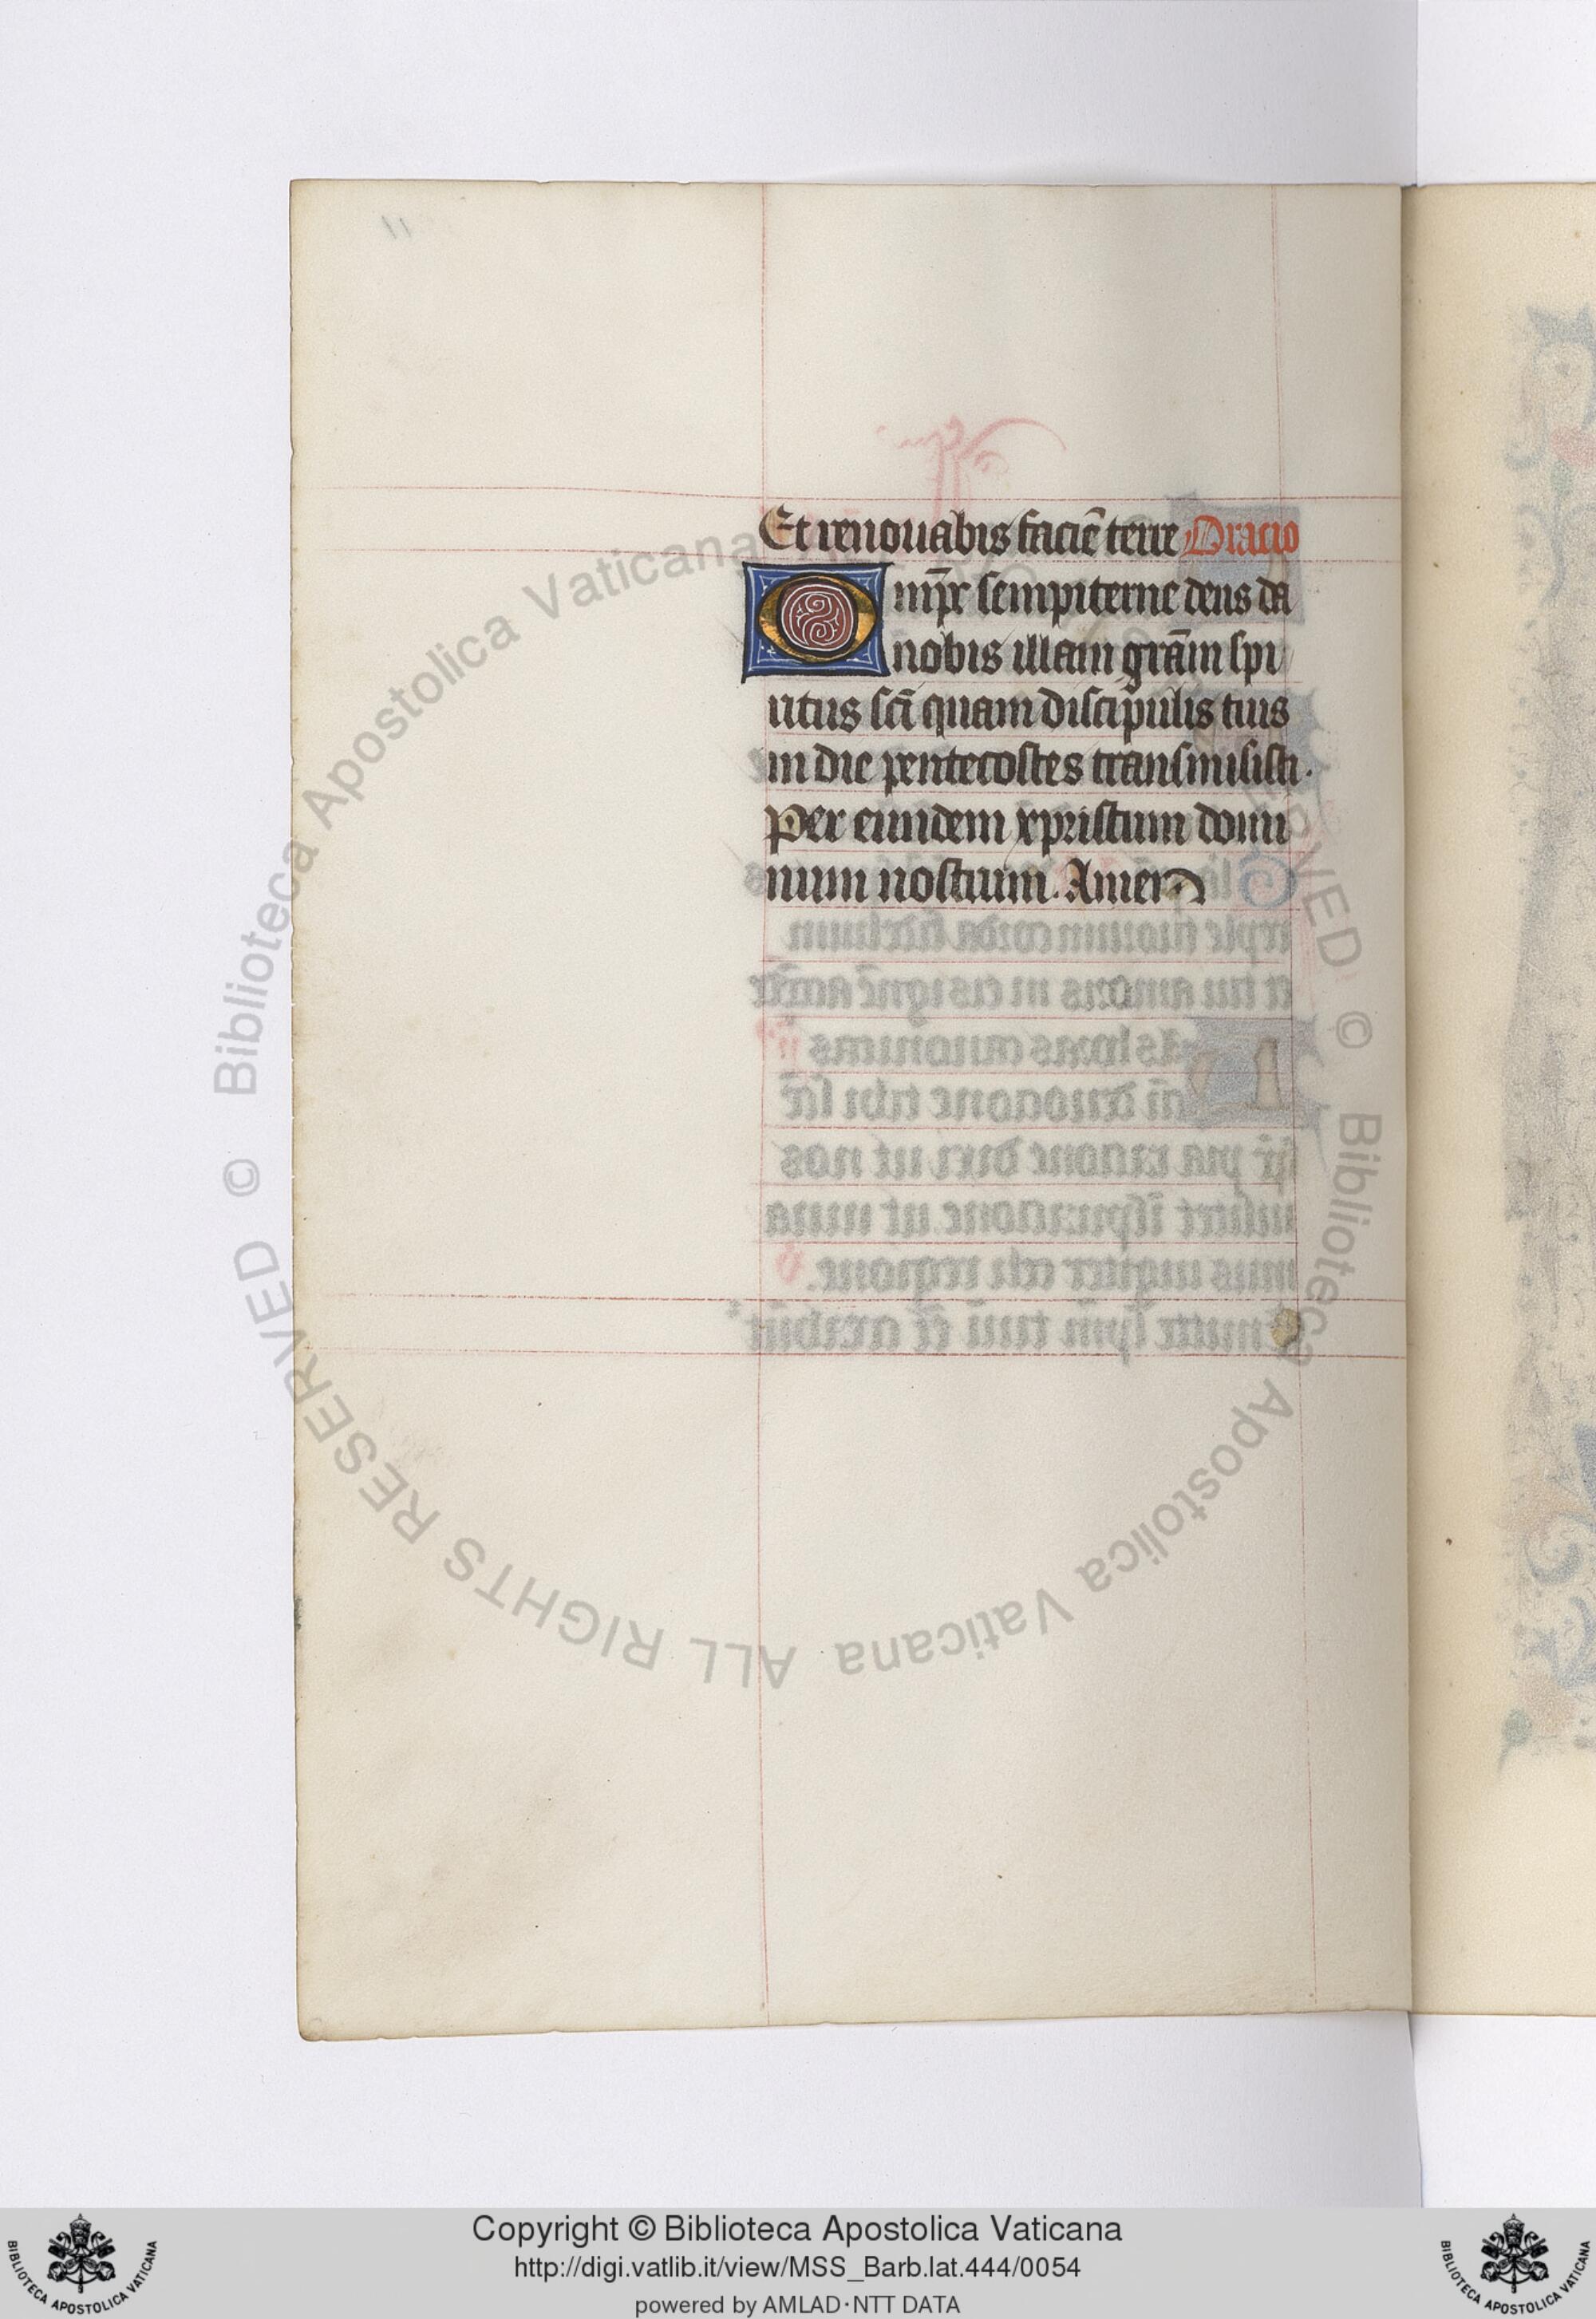 Et renouabis faciē terre Oracio
Omp̄r sempiterne deus da
nobis illam grām spi
ritus sc̄i quam discipulis tuis
in die pentecostes transmisisti.
Per eiusdem xpristum domi
num nostrum. Amen
© Biblioteca Apostolica Vaticana ALL RIGHTS RESERVED © Biblioteca Apostolica Vaticana ALL RIGHTS RESERVED
Copyright © Biblioteca Apostolica Vaticana
http://digi.vatlib.it/view/MSS_Barb.lat.444/0054
powered by AMLAD·NTT DATA
BIBLIOTECA APOSTOLICA VATICANA
BIBLIOTECA APOSTOLICA VATICANA